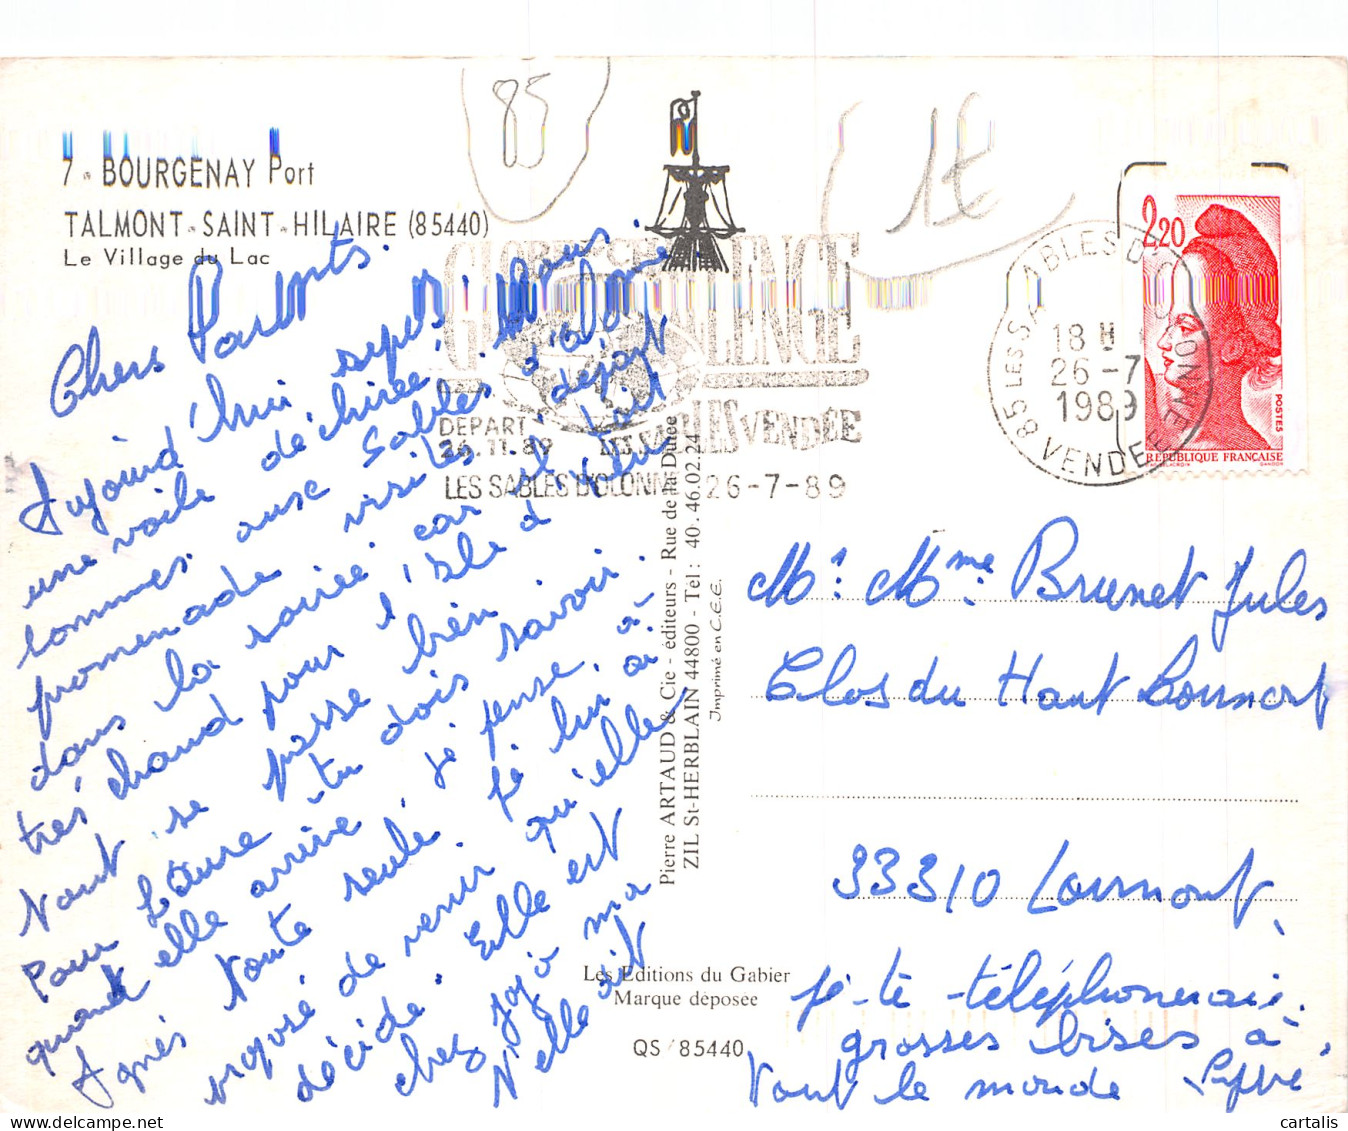 85
1€
7 - BOURGENAY Port
TALMONT-SAINT-HILAIRE (85440)
Le Village du Lac
2,20
POSTES
REPUBLIQUE FRANÇAISE
85 LES SABLES D'OLONNE
18 H
26-7
1989
VENDEE
GLOBE CHALLENGE
DEPART
26.11.89 LES SABLES VENDÉE
LES SABLES D'OLONNE 26-7-89
Chers Parents.
Aujourd'hui repos
une voile déchirée. Nous
sommes aux Sables d'olonne.
promenade visites, départ
dans la soirée car il fait
très chaud pour l'isle d
Tout se passe bien
Pour Laure tu dois savoir.
quand elle arrive je pense à
Agnès Toute seule, je lui ai
proposé de venir qu'elle
décide. Elle est
chez Jojo ma
N elle dit
Pierre ARTAUD & Cie - éditeurs - Rue de la Dutée
ZIL St-HERBLAIN 44800 - Tel : 40.46.02.24
Imprimé en C.E.E.
Les Editions du Gabier
Marque déposée
QS / 85440
Mr. Mme. Brunet Jules
Clos du Haut Lormont
33310 Lormont,
je te téléphonerai.
grosses bises à
Tout le monde